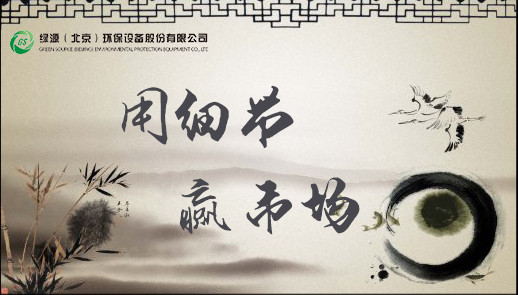 绿源（北京）环保设备股份有限公司
GREEN SOURCE (BEIJING) ENVIRONMENTAL PROTECTION EQUIPMENT CO., LTD
GS
用细节
赢市场